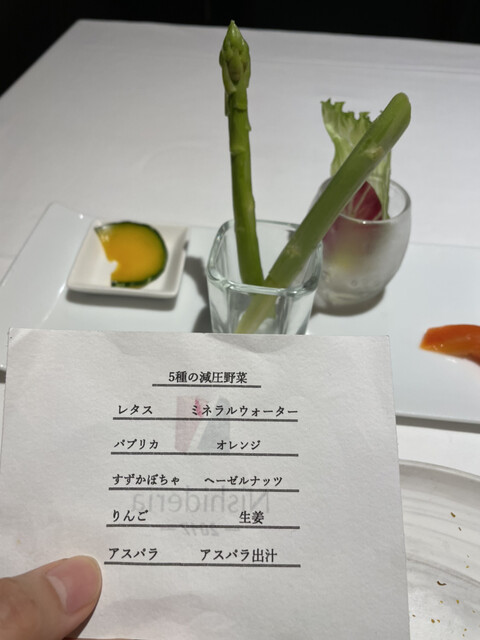 5種の減圧野菜
レタス ミネラルウォーター
パブリカ オレンジ
すずかぼちゃ ヘーゼルナッツ
りんご 生姜
アスパラ アスパラ出汁
Nishideria
2017